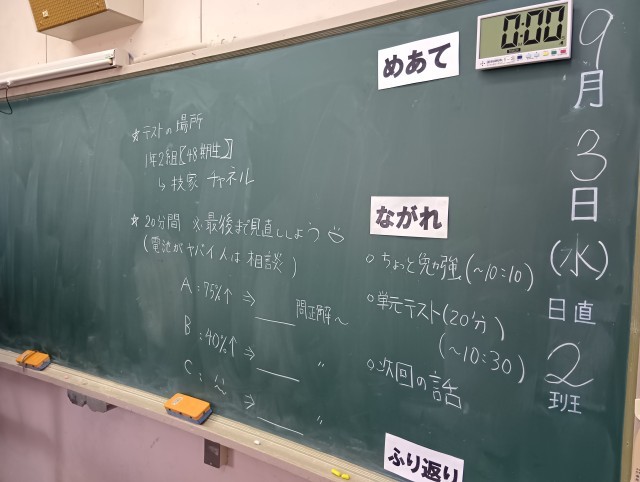 めあて
0:00
9月3日(水)
日直
2班
☆テストの場所
1年2組【48期生】
↳ 技家 チャネル
☆20分間 ※最後まで見直ししよう
(電池がヤバイ人は相談)
A:75%↑ ⇒ ＿＿ 問正解〜
B:40%↑ ⇒ ＿＿ 〃
C: ⇒ ＿＿ 〃
ながれ
○ちょっと勉強(〜10:10)
○単元テスト(20分)
(〜10:30)
○次回の話
ふり返り